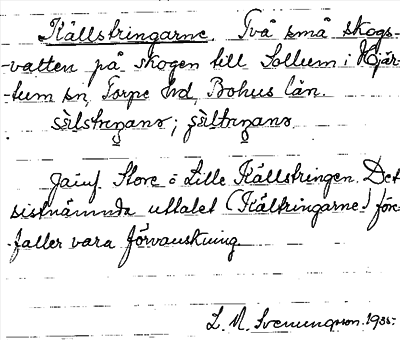 Källstringarne. Två små skogs-
vatten på skogen till Sollum i Hjär-
-tum sn, Torpe hd, Bohus län.
Jämf. Store o Lille Källstringen. Det
sistnämnda uttalet (Kältringarne) före-
-faller vara förvanskning.
L. M. Svenungsson. 1935.